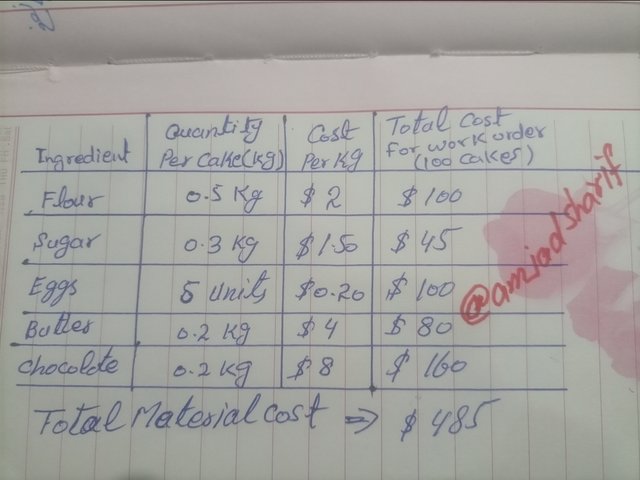 Ingredient | Quantity Per Cake(kg) | Cost Per Kg | Total Cost For work order (100 Cakes)
Flour | 0.5 Kg | $ 2 | $ 100
Sugar | 0.3 Kg | $ 1.50 | $ 45
Eggs | 5 Units | $0.20 | $ 100
Butter | 0.2 Kg | $ 4 | $ 80
Chocolate | 0.2 Kg | $ 8 | $ 160
Total Material Cost ⇒ $ 485
@amjadsharif